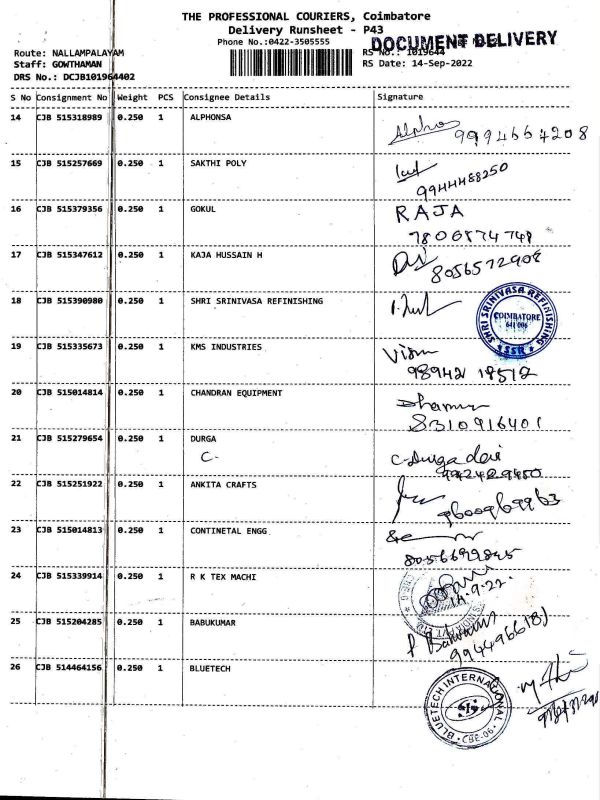 THE PROFESSIONAL COURIERS, Coimbatore
Delivery Runsheet - P43
Phone No.:0422-3505555
DOCUMENT DELIVERY
Route: NALLAMPALAYAM
RS No.: 1019644
Staff: GOWTHAMAN
RS Date: 14-Sep-2022
DRS No.: DCJB101964402
S No Consignment No Weight PCS Consignee Details Signature
14 CJB 515318989 0.250 1 ALPHONSA
Alpho 9994664208
15 CJB 515257669 0.250 1 SAKTHI POLY
9944488250
16 CJB 515379356 0.250 1 GOKUL RAJA
7806874748
17 CJB 515347612 0.250 1 KAJA HUSSAIN H
8056572908
18 CJB 515390980 0.250 1 SHRI SRINIVASA REFINISHING
SHRI SRINIVASA REFINISHING
COIMBATORE
641 006
SSR
19 CJB 515335673 0.250 1 KMS INDUSTRIES
98942 18512
20 CJB 515014814 0.250 1 CHANDRAN EQUIPMENT
8310916401
21 CJB 515279654 0.250 1 DURGA
C- C-Durga devi
9942429450
22 CJB 515251922 0.250 1 ANKITA CRAFTS
9600969963
23 CJB 515014813 0.250 1 CONTINETAL ENGG
8056699845
24 CJB 515339914 0.250 1 R K TEX MACHI
14.9.22.
25 CJB 515204285 0.250 1 BABUKUMAR
9944966181
26 CJB 514464156 0.250 1 BLUETECH
BLUETECH INTERNATIONAL
CBE-06